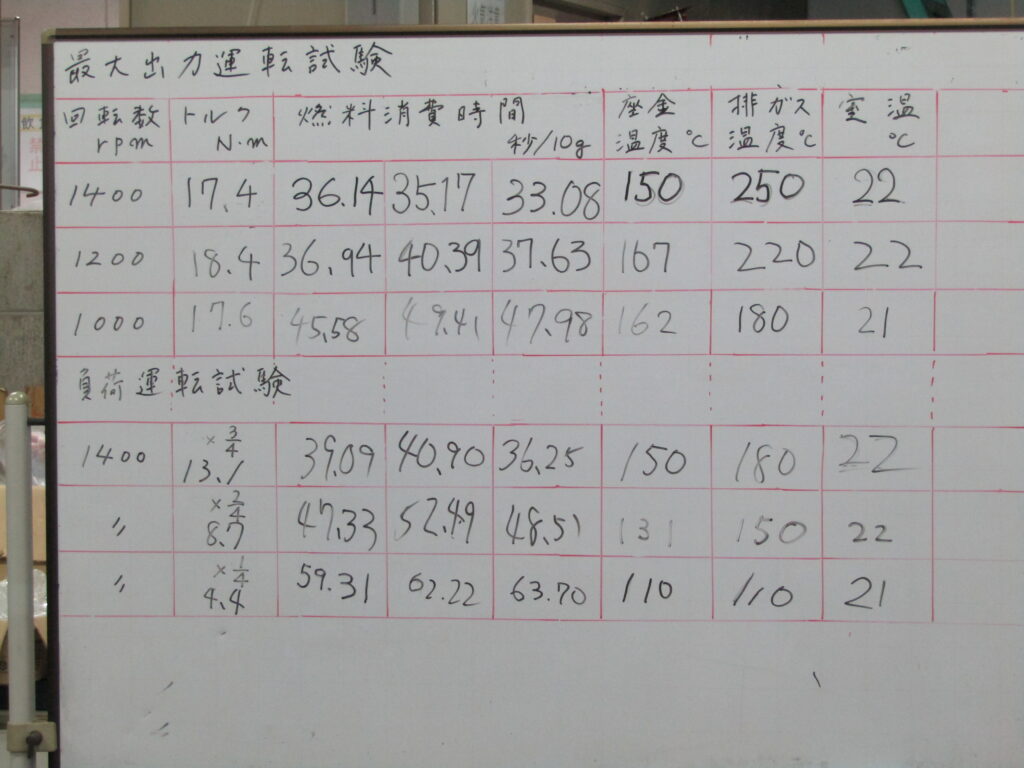 最大出力運転試験
回転数 rpm トルク N·m 燃料消費時間 秒/10g 座金温度 ℃ 排ガス温度℃ 室温 ℃
1400 17.4 36.14 35.17 33.08 150 250 22
1200 18.4 36.94 40.39 37.63 167 220 22
1000 17.6 45.58 49.41 47.98 162 180 21
負荷運転試験
1400 ×3/4 13.1 39.09 40.90 36.25 150 180 22
〃 ×2/4 8.7 47.33 52.49 48.51 131 150 22
〃 ×1/4 4.4 59.31 62.22 63.70 110 110 21
飲
禁止